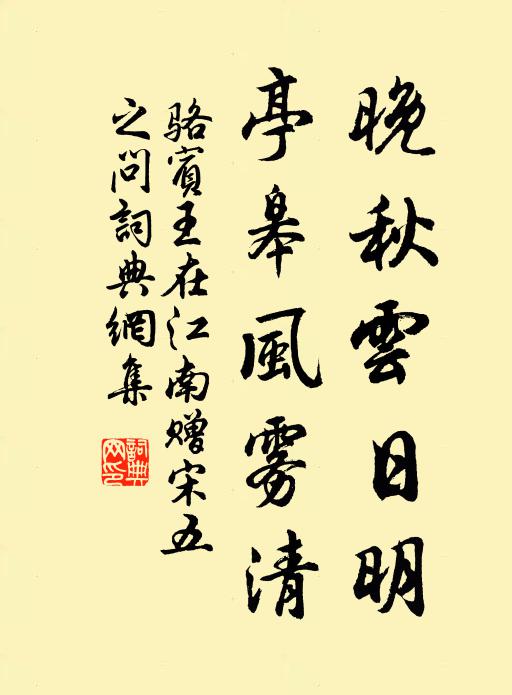 晚秋雲日明
亭皋風雾清
骆賓王在江南赠宋五
之問詞典網集
詞典
网印